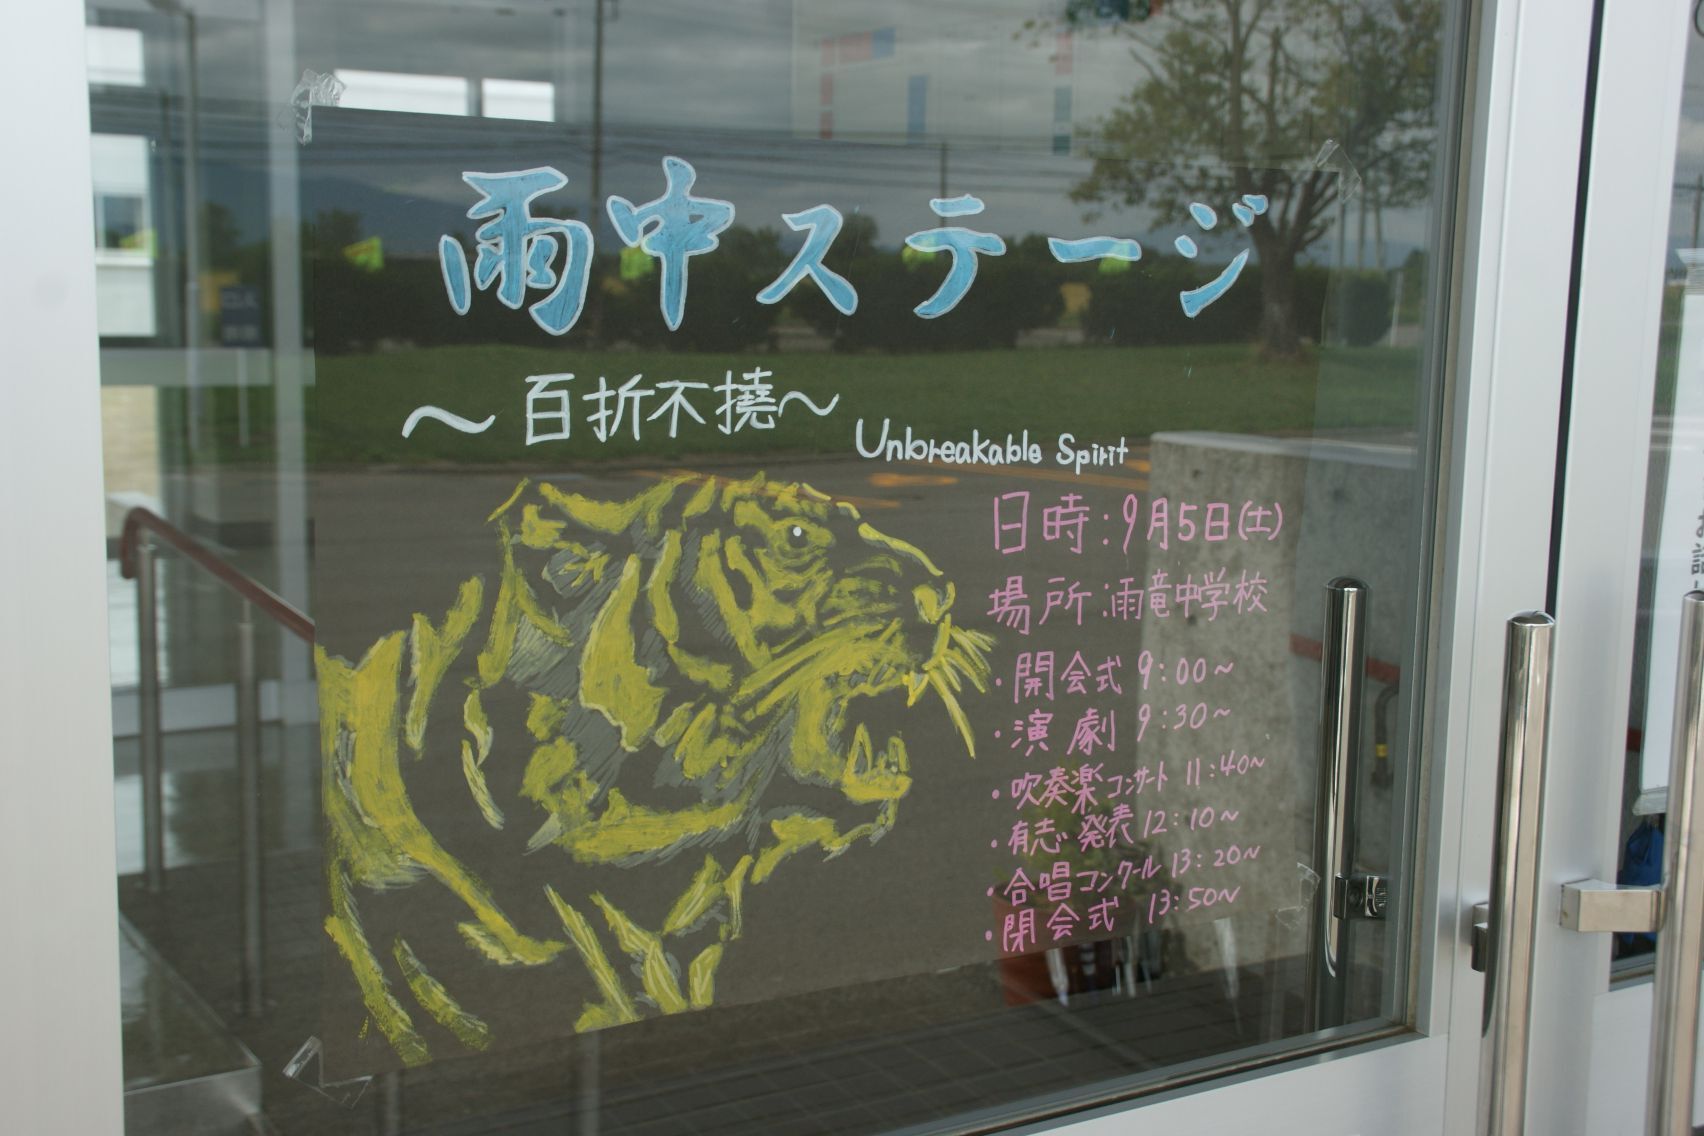 雨中ステージ
～百折不撓～
Unbreakable Spirit
日時：9月5日(土)
場所：雨竜中学校
・開会式 9:00～
・演劇 9:30～
・吹奏楽コンサート 11:40～
・有志発表 12:10～
・合唱コンクール 13:20～
・閉会式 13:50～